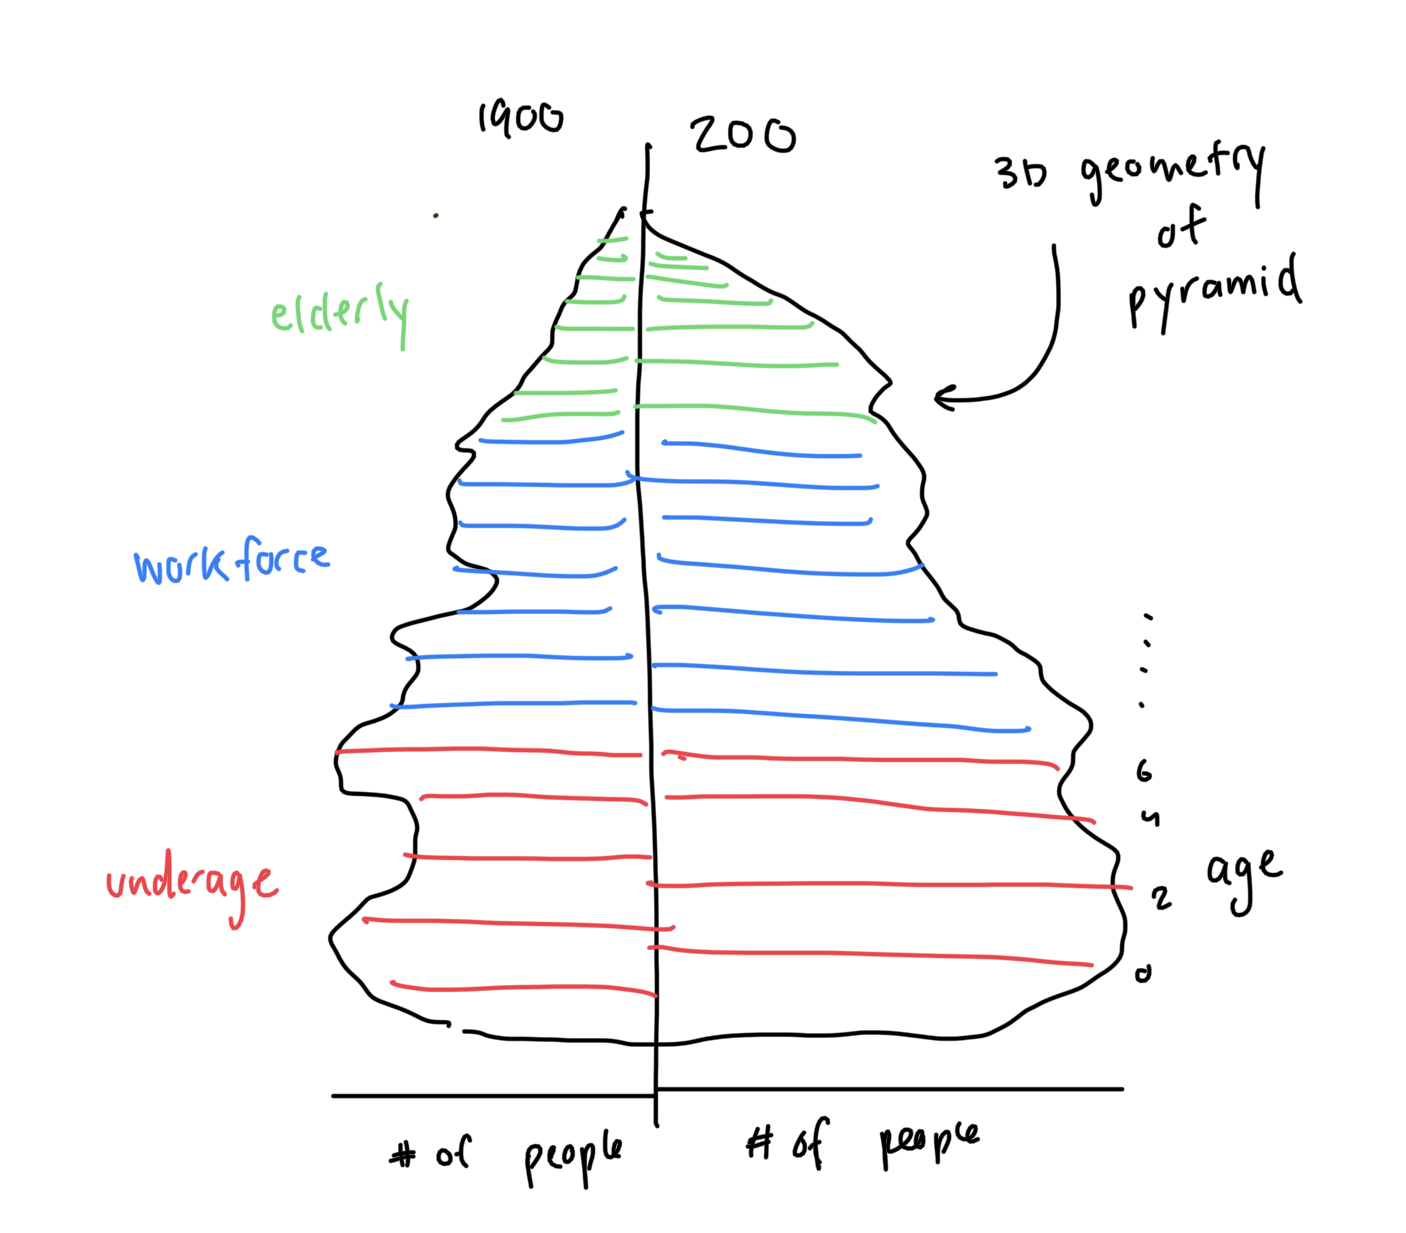 1900
200
3D geometry
of
pyramid
elderly
workforce
underage
6
4
2
0
age
# of people
# of people